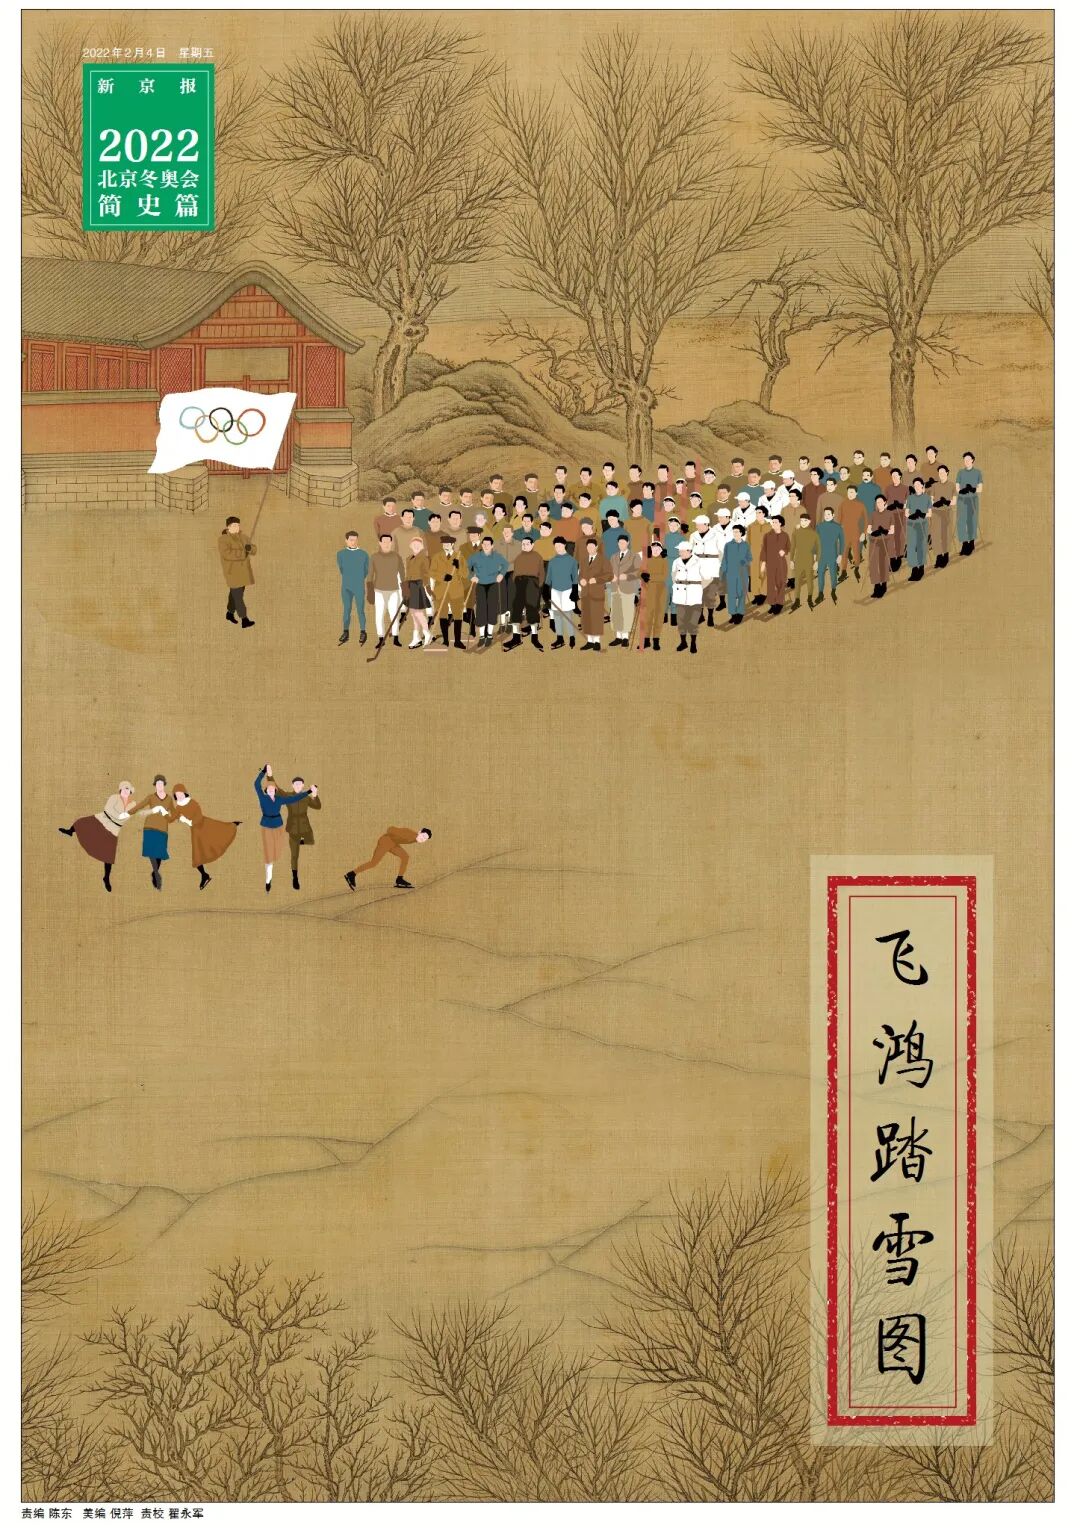 2022年2月4日 星期五
新京报
2022
北京冬奥会
简史篇
飞鸿踏雪图
责编 陈东 美编 倪萍 责校 翟永军